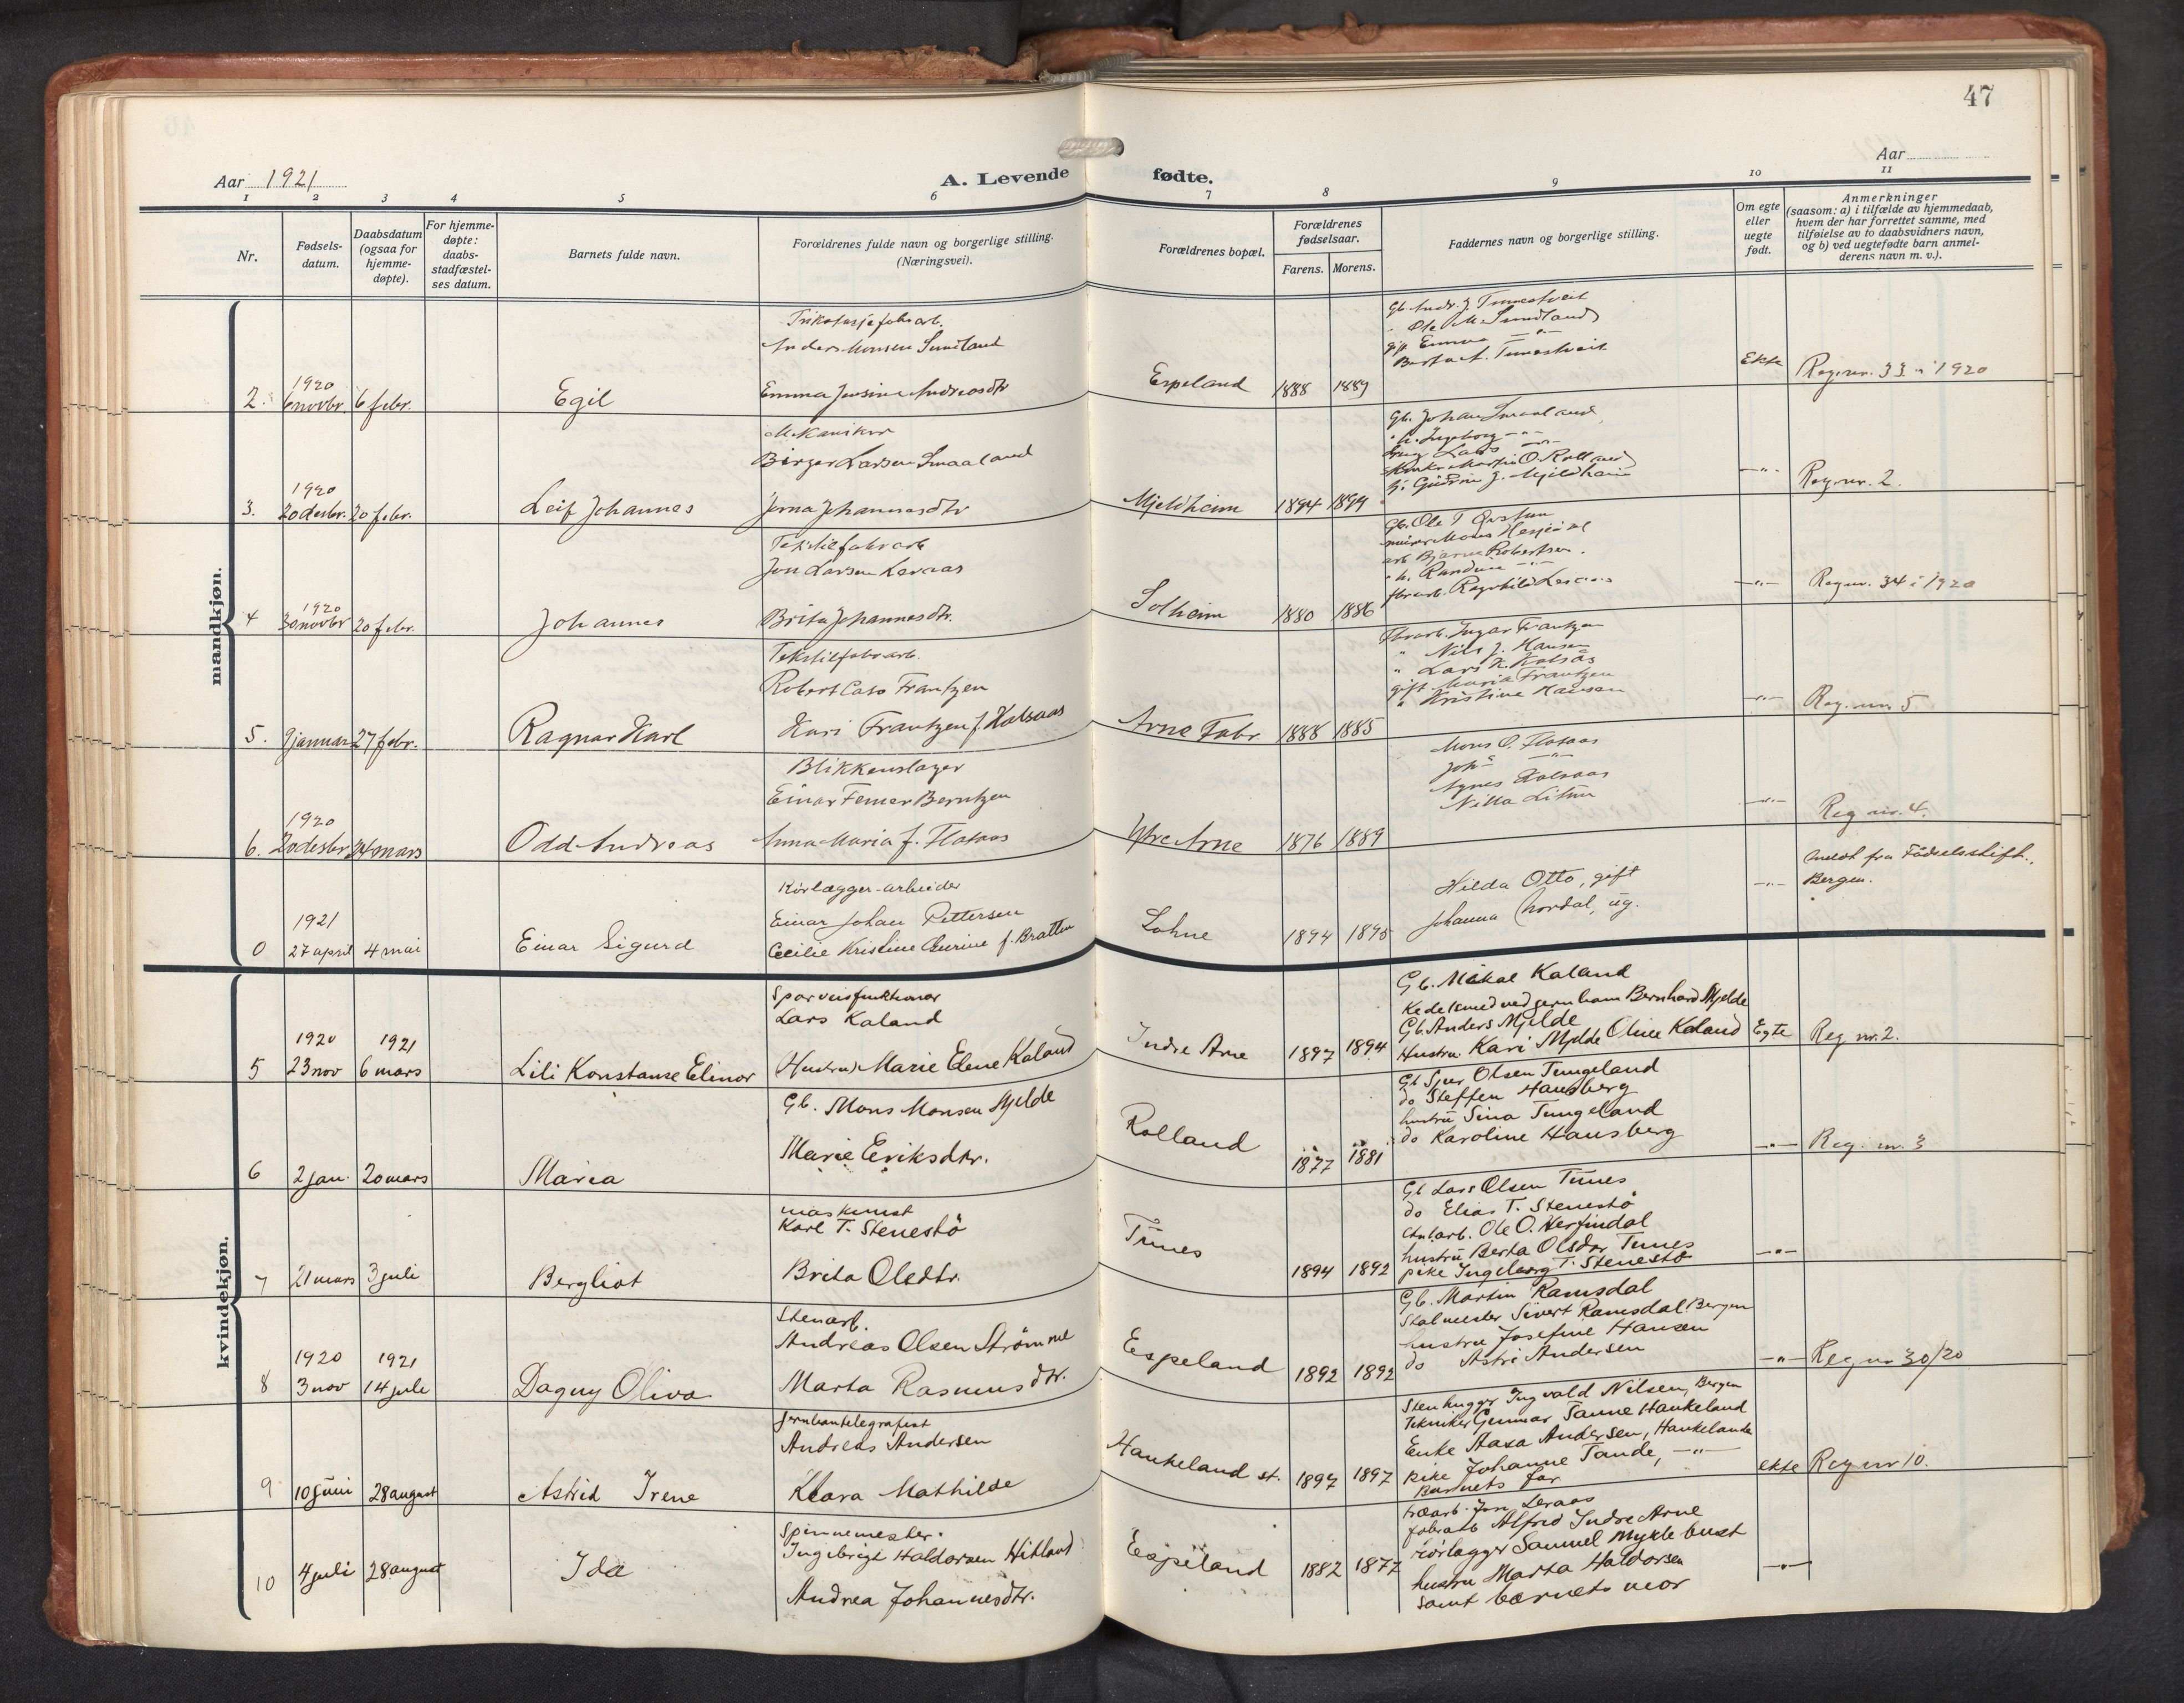 47
Aar 1921
A. Levende fødte.
Aar
1 2 3 4 5 6 7 8 9 10 11
Nr.
Fødsels-
datum.
Daabsdatum
(ogsaa for
hjemme-
døpte).
For hjemme-
døpte:
daabs-
stadfæstel-
ses datum.
Barnets fulde navn.
Forældrenes fulde navn og borgerlige stilling.
(Næringsvei).
Forældrenes bopæl.
Forældrenes
fødselsaar.
Farens. Morens.
Faddernes navn og borgerlige stilling.
Om egte
eller
uegte
født.
Anmerkninger
(saasom: a) i tilfælde av hjemmedaab,
hvem der har forrettet samme, med
tilføielse av to daabsvidners navn,
og b) ved uegtefødte barn anmel-
derens navn m. v.).
mandkjøn.
2.
1920
6 novbr
6 febr.
Egil
Trikotasjefabrarb.
Anders Monsen Sundland
Emma Jensine Andreasdtr
Espeland
1888 1889
Gb. Andr. J. Tunestveit
" Ole M. Sundland
gift Emma — " —
Berta A. Tunestveit
Ekte
Reg. nr. 33 i 1920
3.
1920
20 desbr.
20 febr.
Leif Johannes
Mekaniker
Birger Larsen Smaaland
Jerna Johannesdtr
Mjeldheim
1894 1899
Gb. Johan Smaaland
" h. Ingeborg — " —
Lars — " —
Martin O. Rolland
Gudrun J. Mjeldheim
— " —
Reg. nr. 2.
4
1920
30 novbr
20 febr.
Johannes
Tekstilfabrarb
Jon Larsen Leraas
Brita Johannesdtr.
Solheim
1880 1886
Gb. Ole T.
murer Mons Hesjedal
arb Bjarne Robertsen.
" h. Randine — " —
fbrarb. Ragnhild Leraas
— " —
Reg nr. 34 i 1920
5.
9 januar
27 febr.
Ragnar Karl
Tekstilfabrarb.
Robert Caso Frantzen
Kari Frantzen f. Kalsaas
Arne Fabr.
1888 1885
Fbrarb. Ingar Frantzen
" Nils J. Hansen
" Lars K. Kalsås
gift Maria Frantzen
" Kristine Hansen
— " —
Reg. nr. 5
6.
1920
20 desbr
24 mars
Odd Andreas
Blikkenslager
Einar Ferner Berntzen
Anna Maria f. Flataas
Ytre Arne
1876 1889
Mons O. Flataas
Joh's — " —
Agnes Kalsaas
Nilla
— " —
Reg nr. 4.
0
1921
27 april
4 mai
Einar Sigurd
Rörlægger-arbeider
Einar Johan Pettersen
Cecilie Kristine Gurine f. Bratten
Lohne
1894 1895
Hilda Otto, gift
Johanna Nordal, ug.
— " —
Anmeldt fra Fødselsstift.,
Bergen.
kvindekjøn.
5
1920
23 nov
1921
6 mars
Lili Konstanse Elinor
Sporveisfunktionær
Lars Kaland
Hustru Marie Elene Kaland
Indre Arne
1897 1894
Gb. Mikal Kaland
Kedelsmed ved jernban Bernhard Mjelde
Gb. Anders Mjelde
Hustru Kari Mjelde Oline Kaland
Egte
Reg nr. 2.
6
2 jan.
20 mars
Maria
Gb. Mons Monsen Mjelde
Marie Eriksdtr.
Rolland
1877 1881
Gb Sjur Olsen Tungeland
do Steffen Hausberg
hustru Sina Tungeland
do Karoline Hausberg
— " —
Reg. nr. 3
7
21 mars
3 juli
Bergliot
maskinist
Karl T. Stenestö
Brita Olsdtr.
Tunes
1894 1892
Gb Lars Olsen Tunes
do Elias T. Stenestö
Anl.arb. Ole O. Herfindal
hustru Berta Olsdtr Tunes
pike Ingeborg T. Stenestö
— " —
8
1920
3 nov
1921
14 juli
Dagny Oliva
Stenarb.
Andreas Olsen Strømme
Marta Rasmusdtr.
Espeland
1892 1892
Gb. Martin Ramsdal
Stalmester Sivert Ramsdal Bergen
hustru Josefine Hansen
do Astri Andersen
— " —
Reg nr 30/20
9
10 juni
28 august
Astrid Irene
Jernbantelegrafist
Andreas Andersen
Klara Mathilde
Haukeland st.
1897 1897
Stenhugger Ingvald Nilsen, Bergen
Tekniker Gunnar Tanne Haukeland
Enke Aasa Andersen, Haukeland
pike Johanne Tande, — " —
Barnets far
ekte
Reg nr 10.
10
4 juli
28 august
Ida
Spinnemester.
Ingebrigt Haldorsen Hitland
Andrea Johannesdtr.
Espeland
1882 1877
træarb. Jon Leraas
fabrarb Alfred Indre Arne
rörlægger Samuel Myklebust
hustru Marta Haldorsen
samt barnets mor
— " —